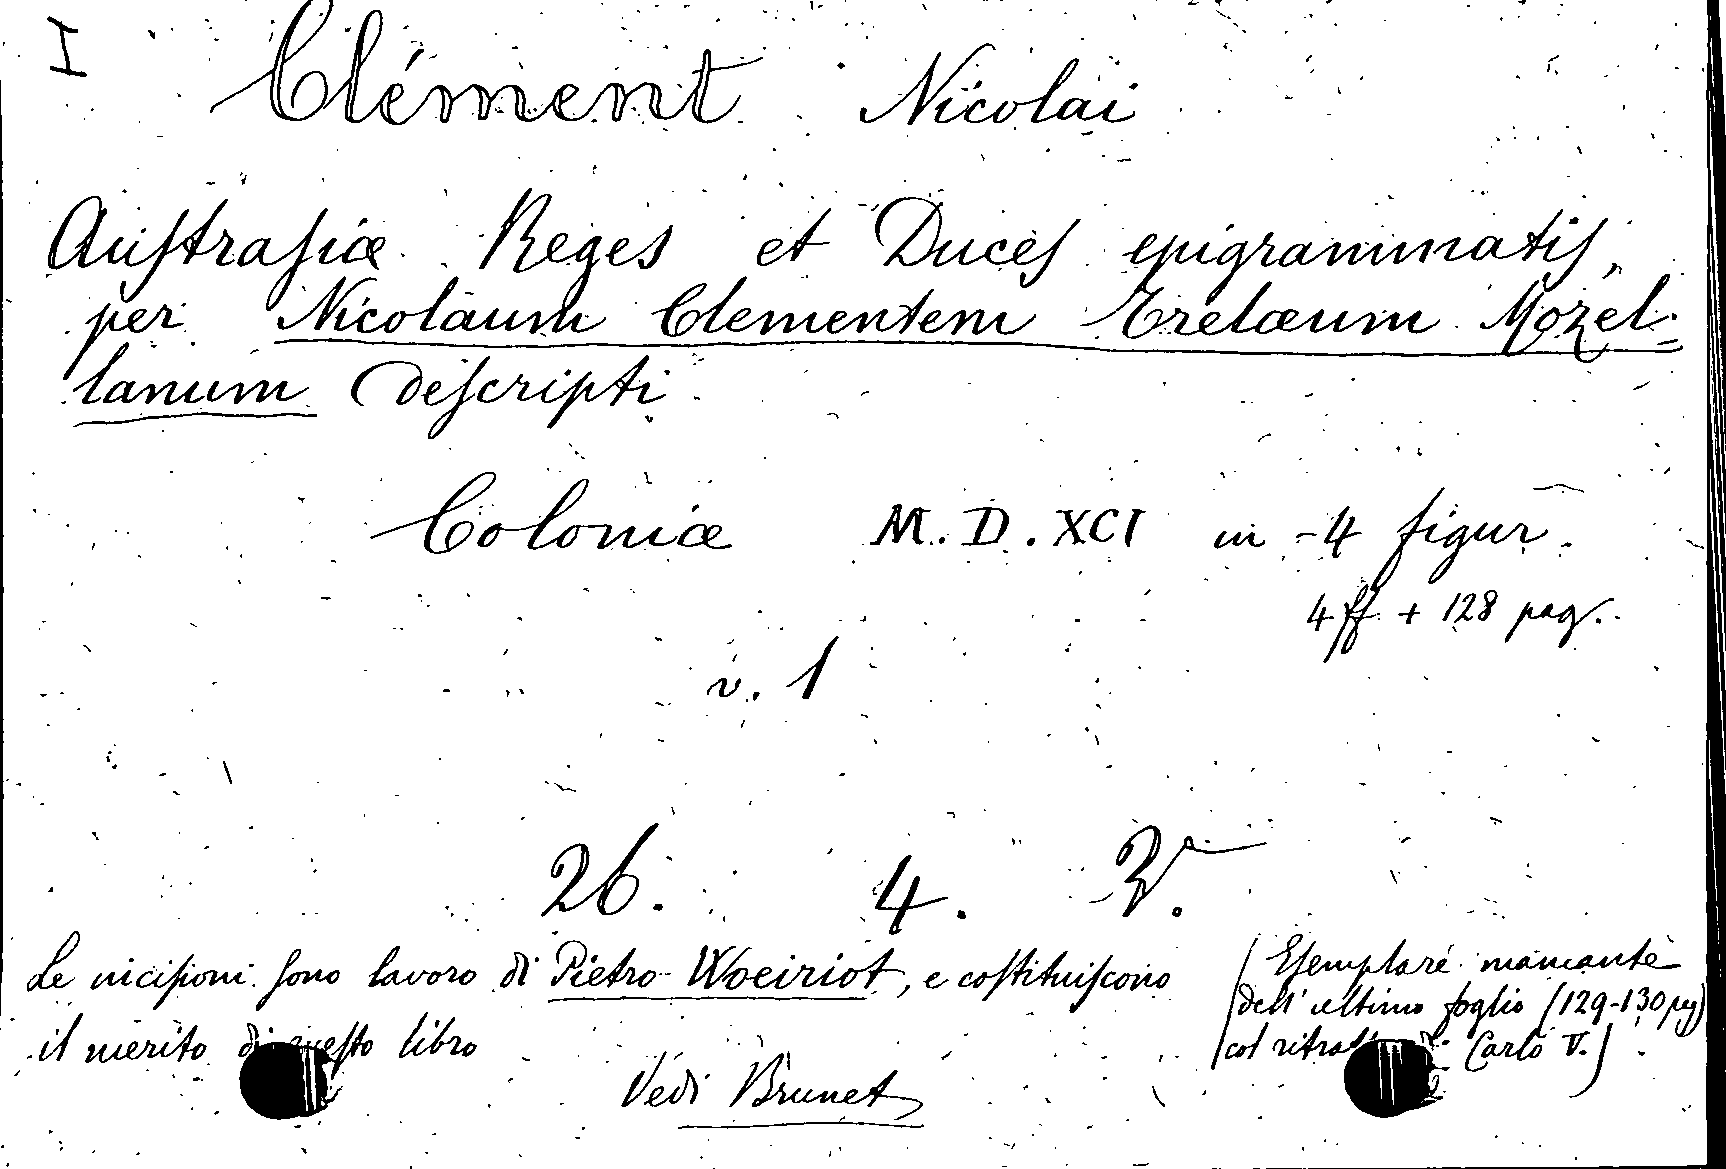 I
Clément Nicolai
Auſtraſiæ Reges et Duceſ epigrammatiſ,
per Nicolaum Clementem Trelæum Mozel-
lanum deſcripti
Coloniæ M.D.XCI in-4 figur.
4 ff + 128 pag.
v. 1
26. 4.
Le inciſioni ſono lavoro di Pietro Woeiriot, e coſtituiſcono
il merito di queſto libro
(Eſemplare mancante
dell'ultimo foglio (129-130 pag)
col ritratto di Carlo V.)
Vedi Brunet